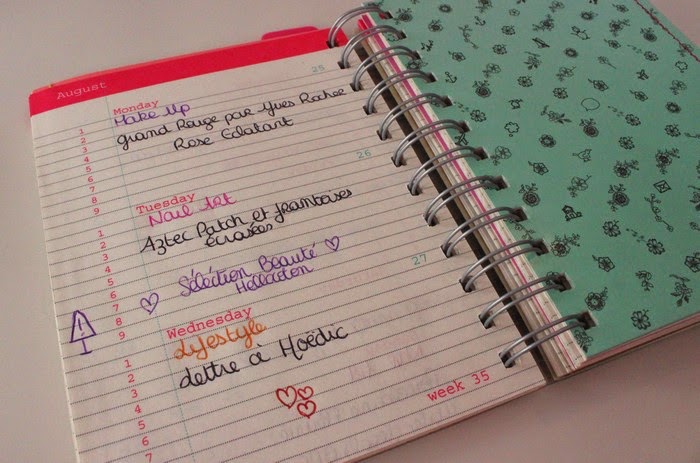 August
25
Monday
1 Make Up
2 grand Rouge par Yves Rocher
3 Rose Eclatant
4
5
6
7
8
9
26
Tuesday
Nail Art
1
2 Aztec Patch et framboises
3 écrasées
4
5 Séléction Beauté
6 Hellocoton
7
8
9
27
Wednesday
Lifestyle
1
2 Lettre à Hoëdic
3
4
5
7
week 35